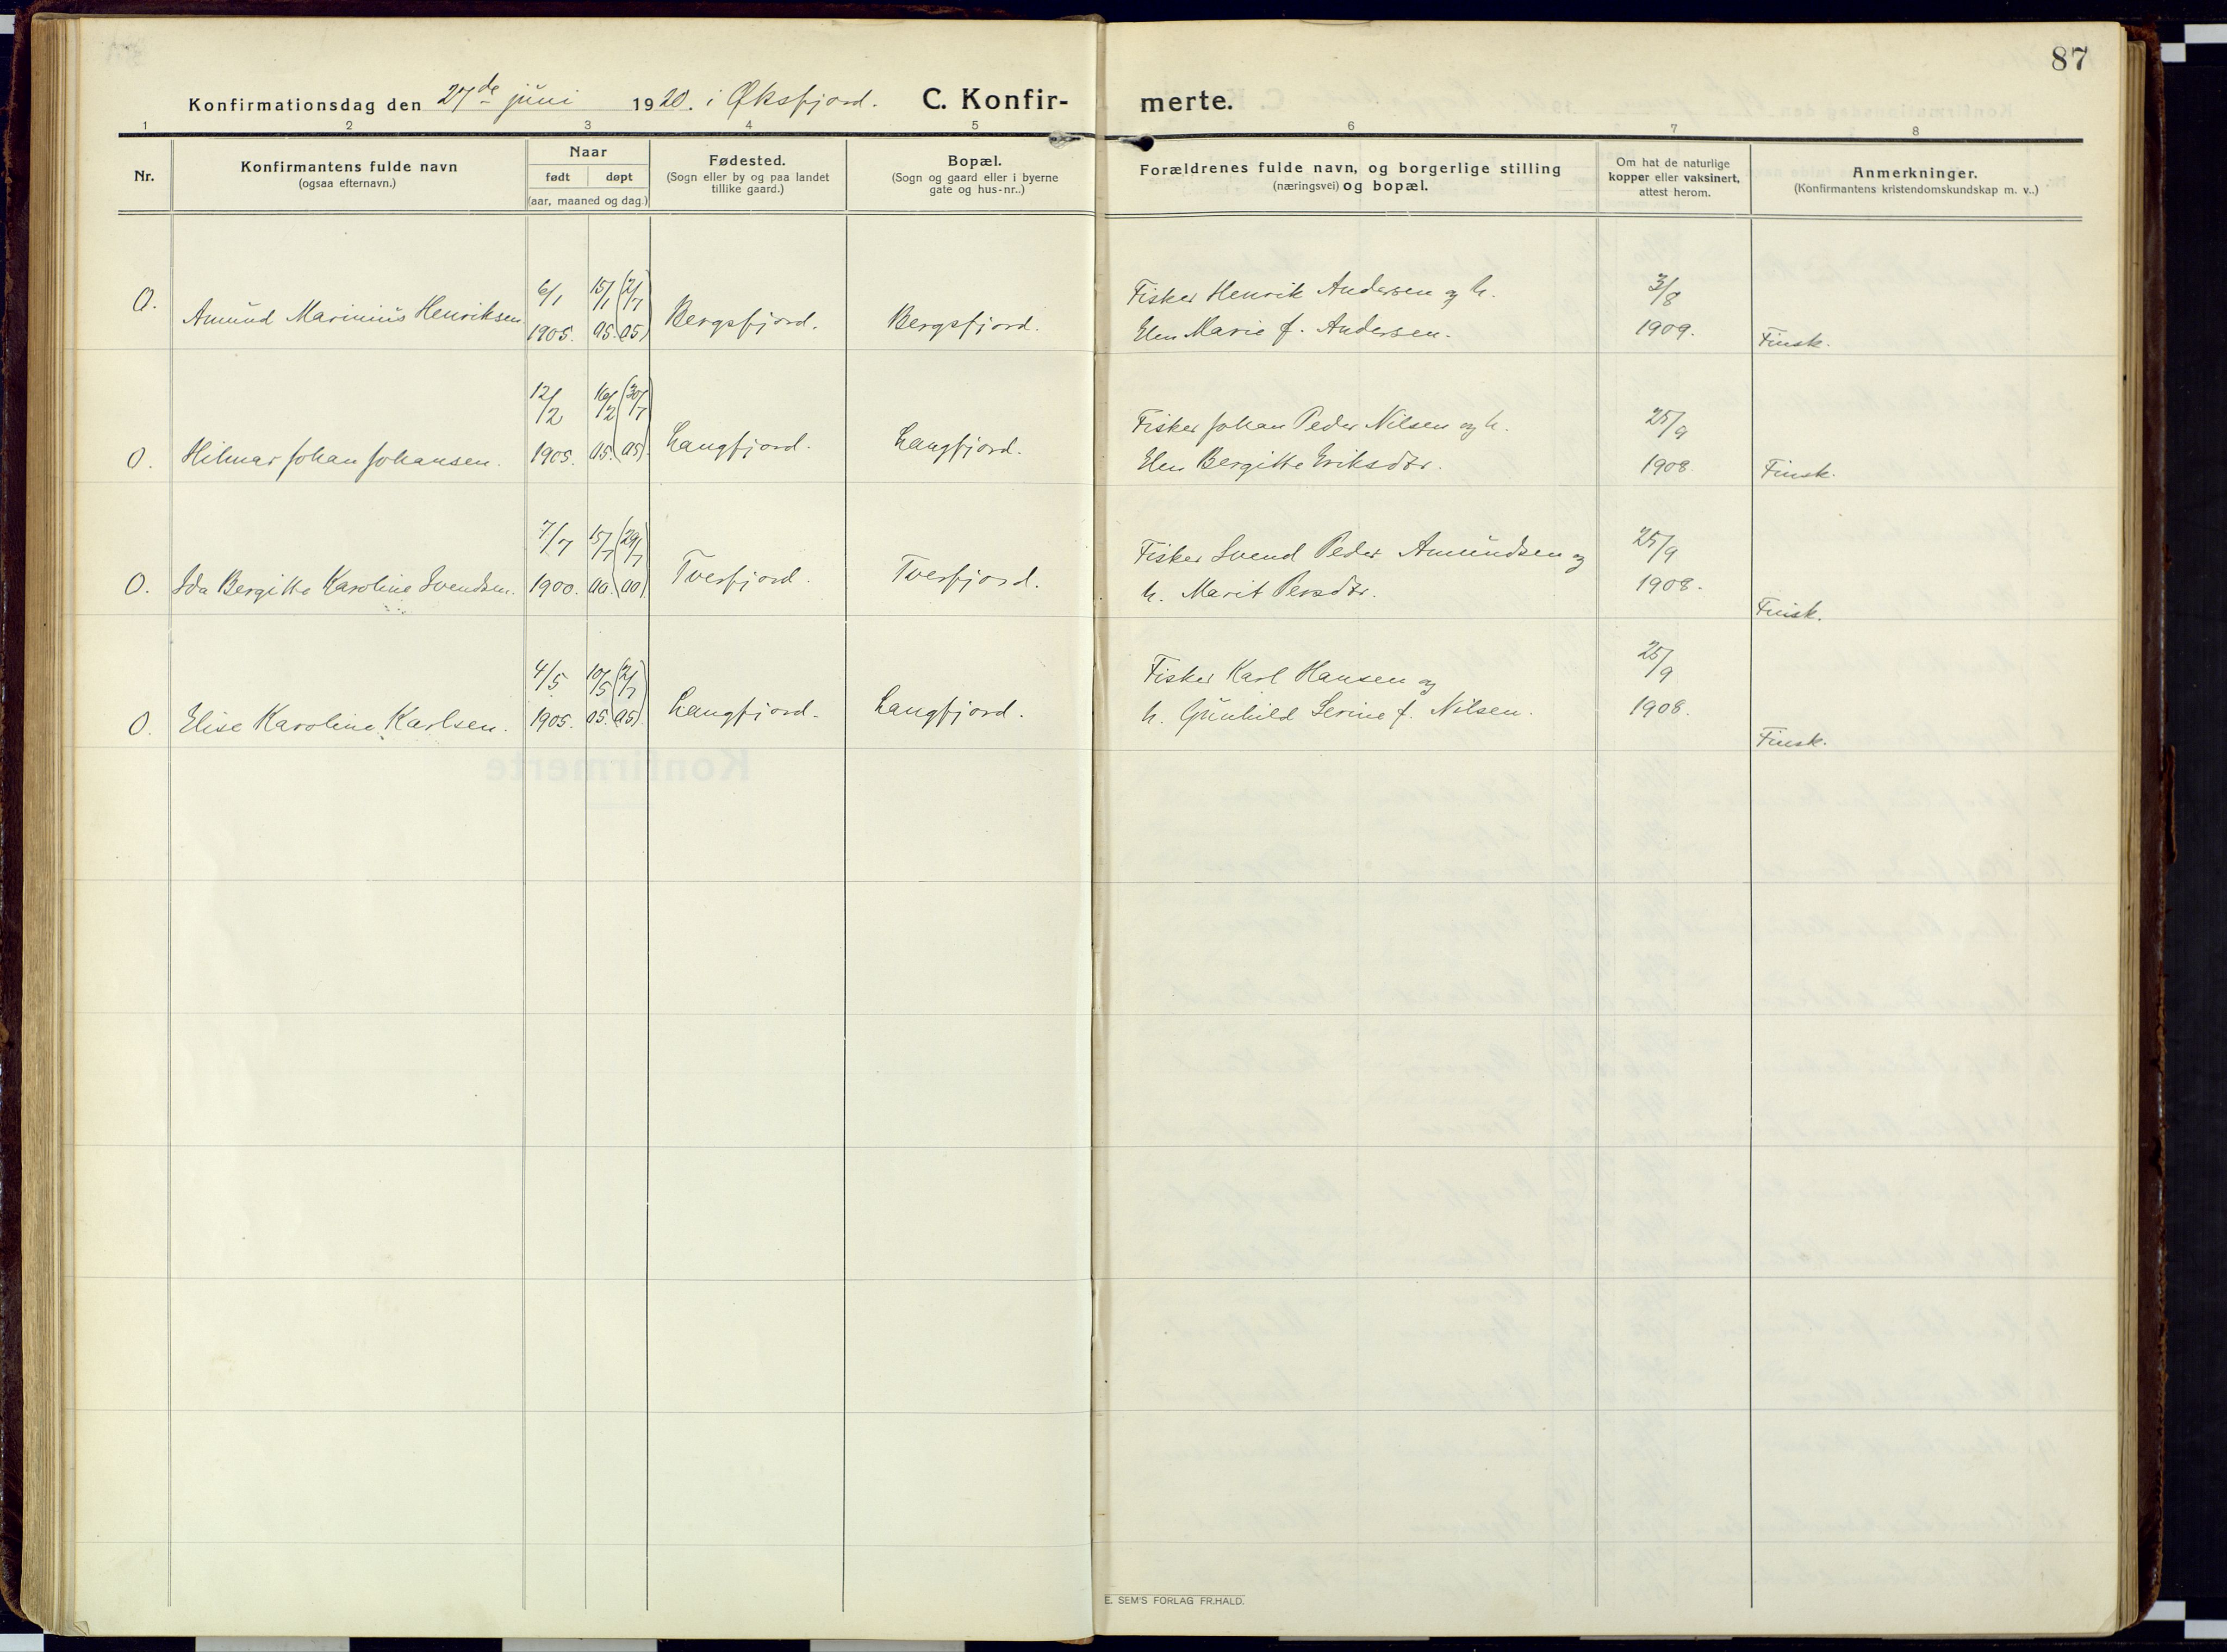 87
Konfirmationsdag den 27de juni 1920. i Øksfjord. C. Konfir- merte.
1 2 3 4 5 6 7 8
Nr.
Konfirmantens fulde navn
(ogsaa efternavn.)
Naar
født døpt
(aar, maaned og dag.)
Fødested.
(Sogn eller by og paa landet
tillike gaard.)
Bopæl.
(Sogn og gaard eller i byerne
gate og hus-nr..)
Forældrenes fulde navn, og borgerlige stilling
(næringsvei) og bopæl.
Om hat de naturlige
kopper eller vaksinert,
attest herom.
Anmerkninger.
(Konfirmantens kristendomskundskap m. v..)
O. Amund Marinius Henriksen 6/1 1905. 15/1 05. (2/7 05) Bergsfjord. Bergsfjord.
Fisker Henrik Andersen og h.
Elen Marie f. Andersen.
3/8
1909.
Finsk.
O. Hilmar Johan Johansen. 12/2 1905. 16/2 05. (30/7 05). Langfjord. Langfjord.
Fisker Johan Peder Nilsen og h.
Elen Bergitte Eriksdtr.
25/9
1908.
Finsk.
O. Ida Bergitte Karoline Svendsen. 7/7 1900. 15/7 00. (29/7 00). Tverfjord. Tverfjord.
Fisker Svend Peder Amundsen og
h. Marit Persdtr.
25/9
1908.
Finsk.
O. Elise Karoline Karlsen. 4/5 1905. 10/5 05. (2/7 05). Langfjord. Langfjord.
Fisker Karl Hansen og
h. Gunhild Serine f. Nilsen.
25/9
1908.
Finsk.
E. SEM'S FORLAG FR.HALD.